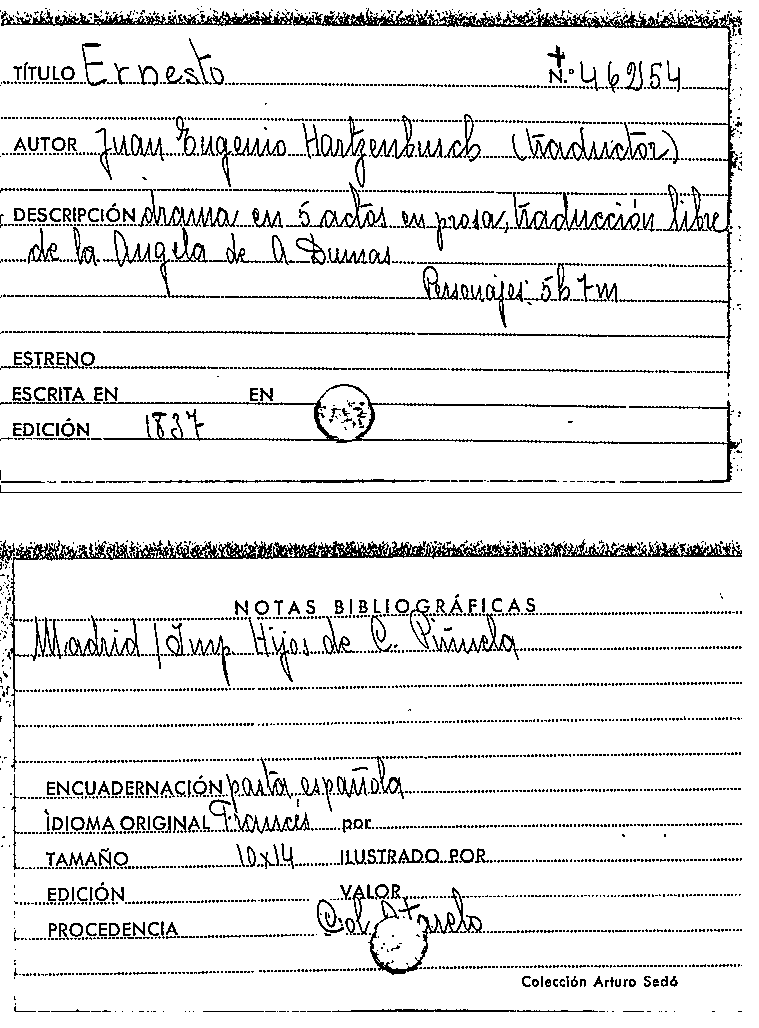 TÍTULO Ernesto N.º 46954
AUTOR Juan Eugenio Hartzenbusch (traductor)
DESCRIPCIÓN drama en 5 actos en prosa, traducción libre
de la Angela de A Dumas
Personajes: 5h 7m
ESTRENO
ESCRITA EN EN
EDICIÓN 1837
NOTAS BIBLIOGRÁFICAS
Madrid / Imp Hijos de C. Piñuela
ENCUADERNACIÓN pasta española
IDIOMA ORIGINAL Francés por
TAMAÑO 10x14 ILUSTRADO POR
EDICIÓN VALOR
PROCEDENCIA Col.
Colección Arturo Sedó